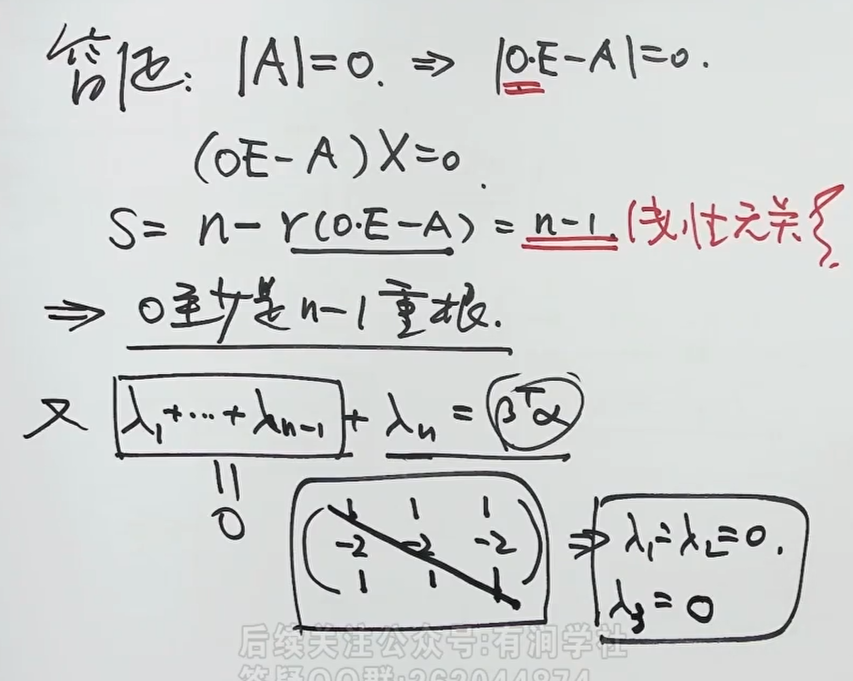 管他: |A|=0. ⇒ |0·E-A|=0.
(0E-A)X=0.
S= n-r(0·E-A) = n-1. 线性无关
⇒ 0至少是n-1重根.
又 λ₁+···+λₙ₋₁ + λₙ = βᵀα
=
0
1 1 1
-2 -2 -2 ⇒ λ₁=λ₂=0.
1 1 1 λ₃=0
后续关注公众号:有润学社
答疑QQ群:262044874